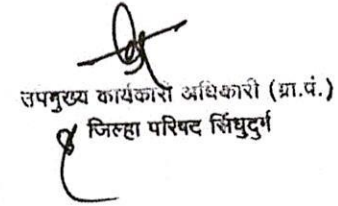 उपमुख्य कार्यकारी अधिकारी (ग्रा.पं.)
जिल्हा परिषद सिंधुदुर्ग